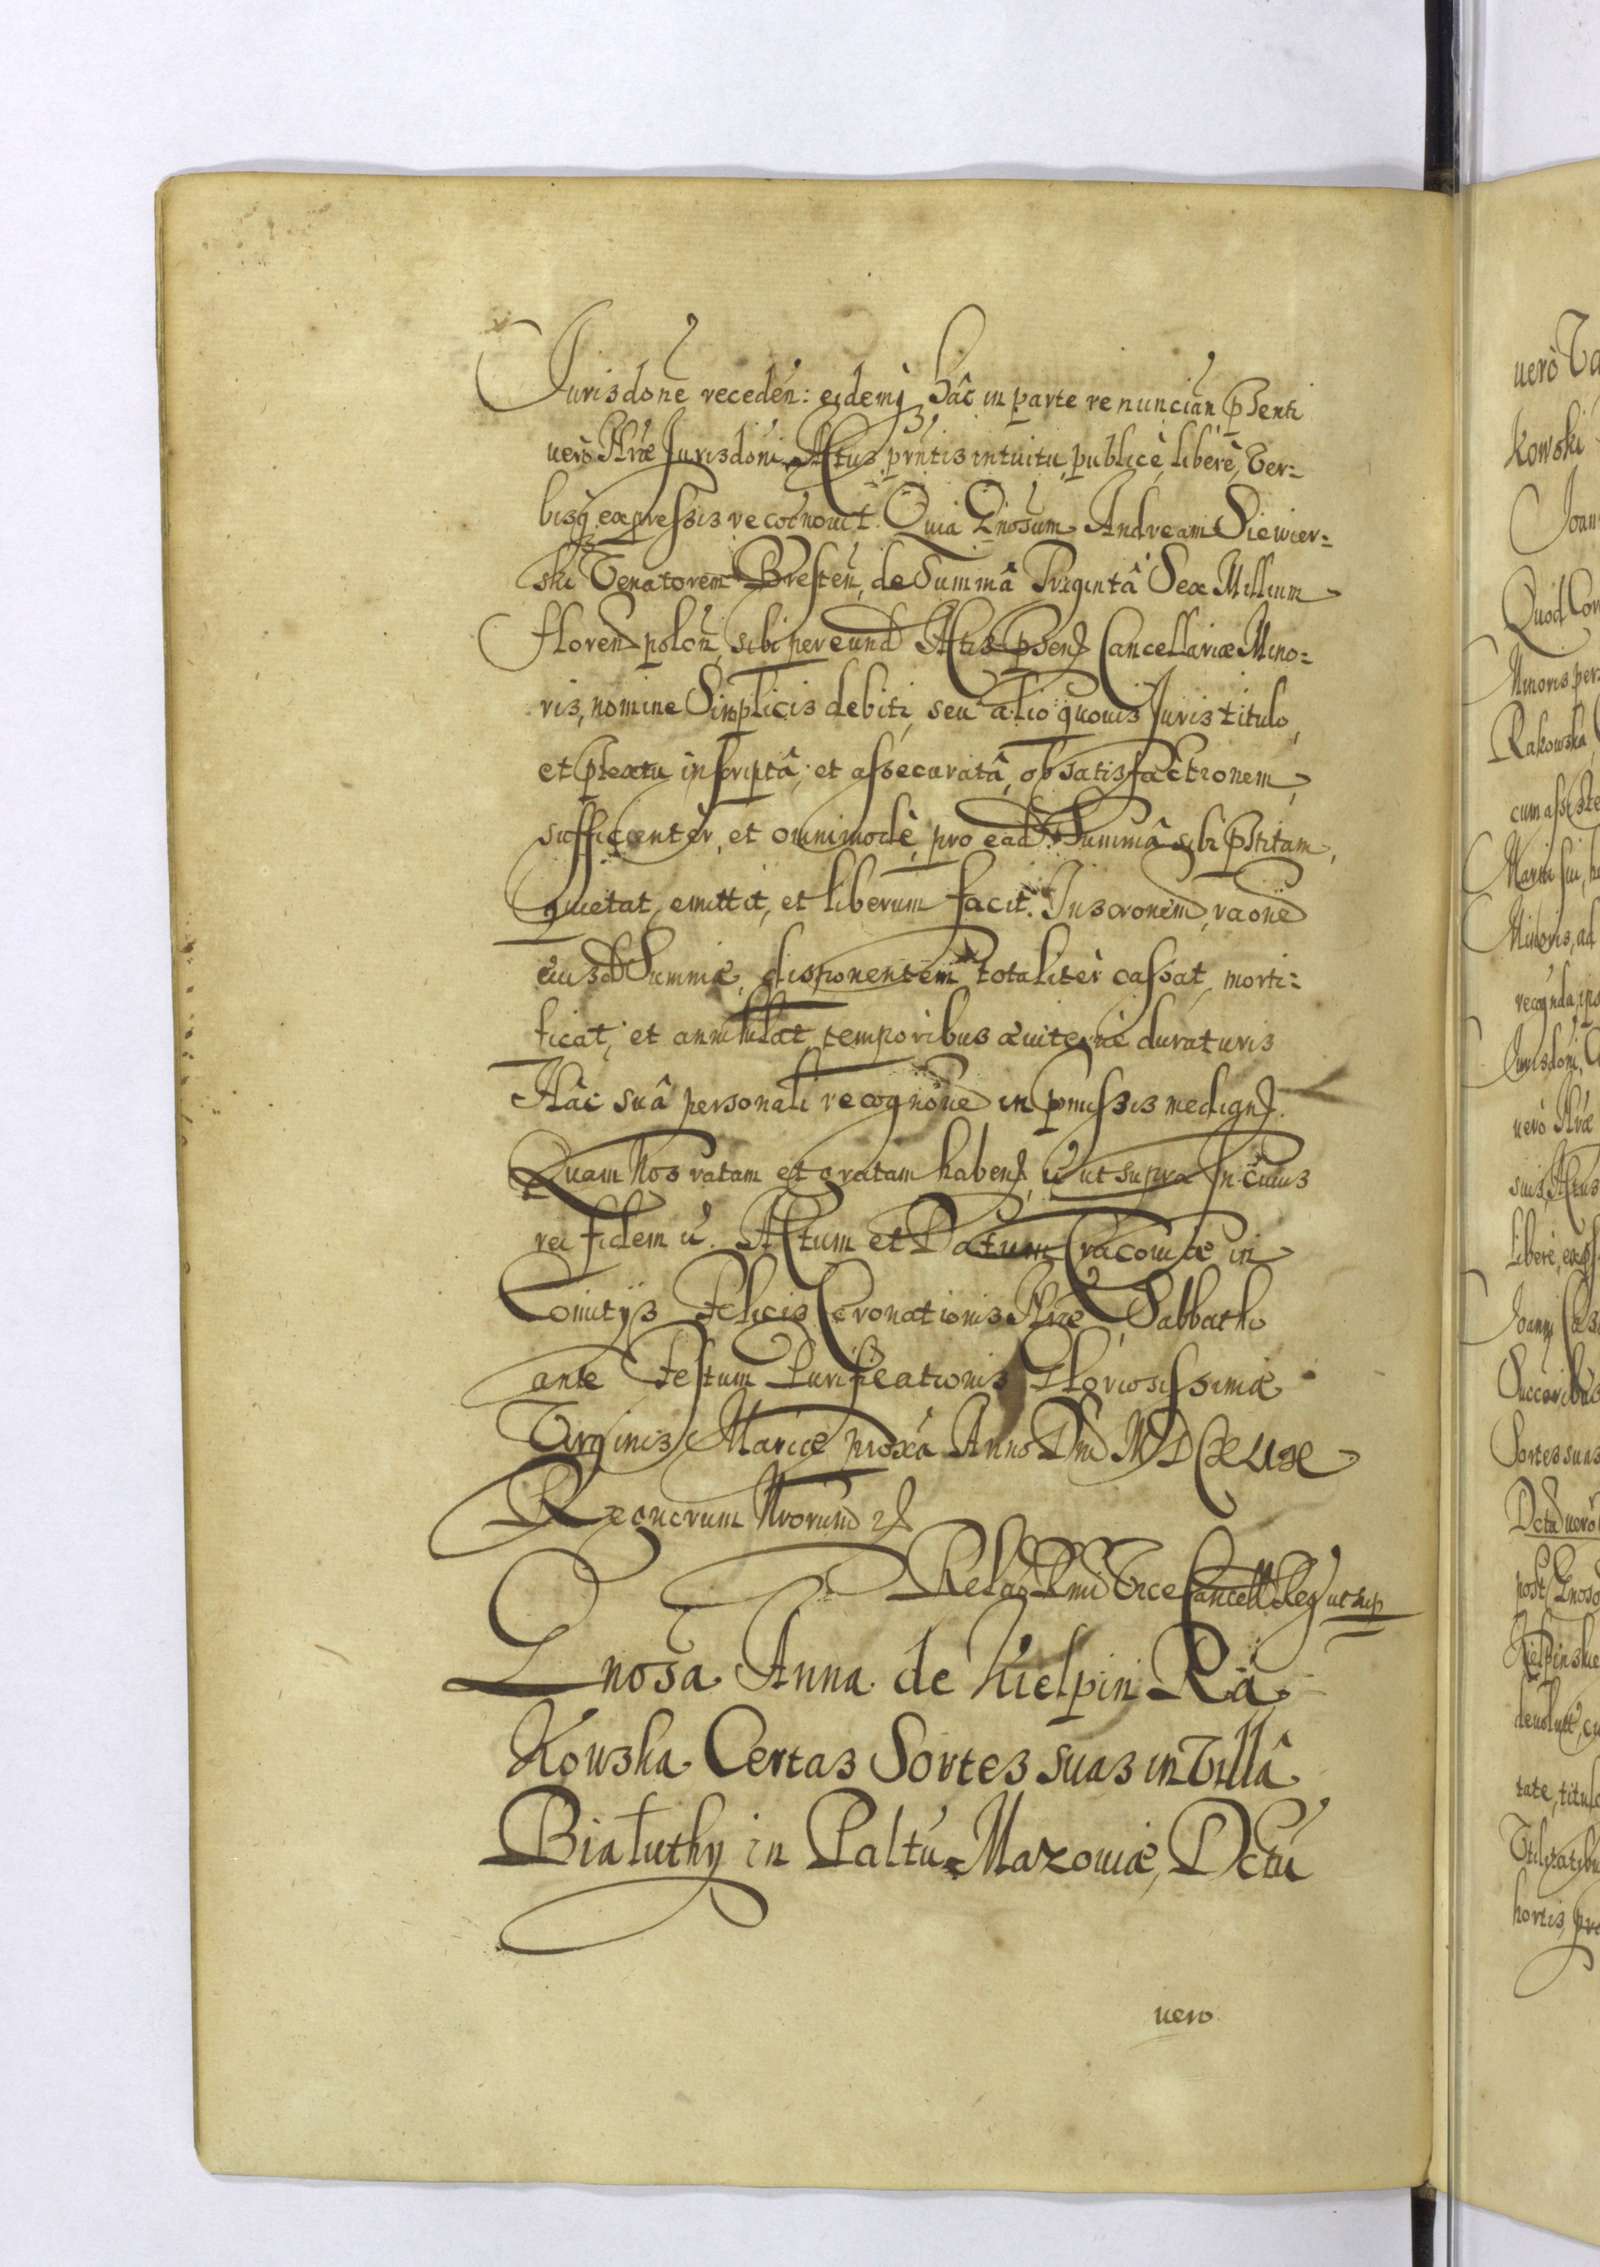 Jurisdone receden: eidemq hâc in parte renuncian psenti
uero Nrae Jurisdoni Actus pntis intuitu publicè, liberè, Ver=
bisq expressis recognouit. Quia Gnosum Andream Siewier=
ski Venatorem Bresten, de Summâ Triginta Sex Millium
floren polon, sibi per eund Actis psen Cancellariae Mino=
ris, nomine Simplicis debiti, seu alio quouis Juris titulo,
et ptextu inscriptâ, et assecuratâ, ob satisfactionem,
sufficienter, et omnimodè, pro ead Summâ sibi pstitam,
quietat, emittit, et liberum facit. Inscronem, raone
eiusd Summae, disponentem totaliter cassat, morti=
ficat, et annihilat, temporibus aeuiternè duraturis
Hâc suâ personali recognone in pmissis medign.
Quam Nos ratam et gratam haben, ut supra In cuius
rei fidem u. Actum et Datum Cracouiae in
Comitijs felicis Coronationis Nrae Sabbatho
ante Festum Purificationis Gloriosissimae
Virginis Mariae proxa Anno Dni MDCXLIX
Regnorum Nrorum
Relao Rmi Vice Cancell Reg ut sup
Gnosa Anna de Kielpin Ra
Kowska Certas Sortes suas in Villâ
Białuthy in Paltu Mazouiae, Dctu
uero
uerò
Kowski
Joan
Quod Con
Minoris per
Rakowska
cum assiste
Mariti sui, h
Minoris, ad
recognda, ips
Jurisdoni,
uero Nrae
suis, Actus
libere, exp
Joanni
Succoribus
Sortes suas
Dcta uero
post Gnoso
Kielpinskie
deuolut, cu
tate, titulo
Vtilitatibu
hortis, pra